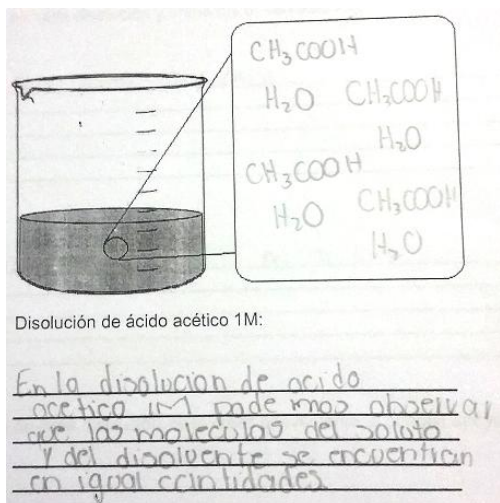 CH₃COOH
H₂O CH₃COOH
H₂O
CH₃COOH
H₂O CH₃COOH
H₂O
Disolución de ácido acético 1M:
En la disolucion de acido
acetico 1M pode mos observar
que las moleculas del soluto
y del disolvente se encuentran
en igual cantidades